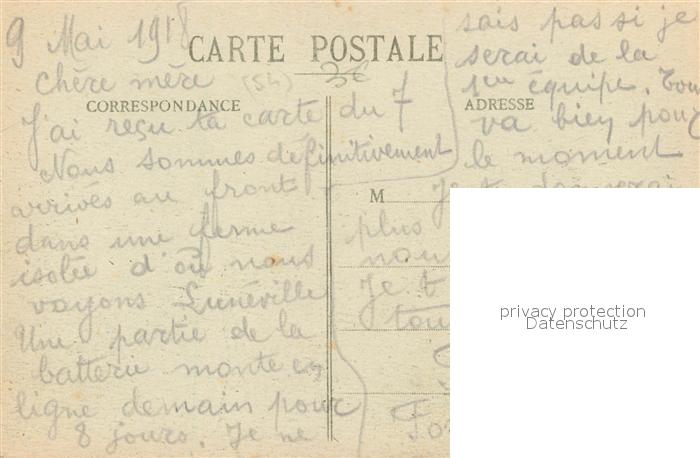 9 Mai 1918
CARTE POSTALE
Chère mère
(54)
CORRESPONDANCE
J'ai reçu ta carte du 7
Nous sommes définitivement
arrivés au front
dans une ferme
isolée d'où nous
voyons Lunéville
Une partie de la
batterie monte en
ligne demain pour
8 jours. Je ne
sais pas si je
serai de la
1ère équipe. Tout
ADRESSE
va bien pour
le moment
M
Je t donnerai
plus
nou
Je t
tou
privacy protection
Datenschutz